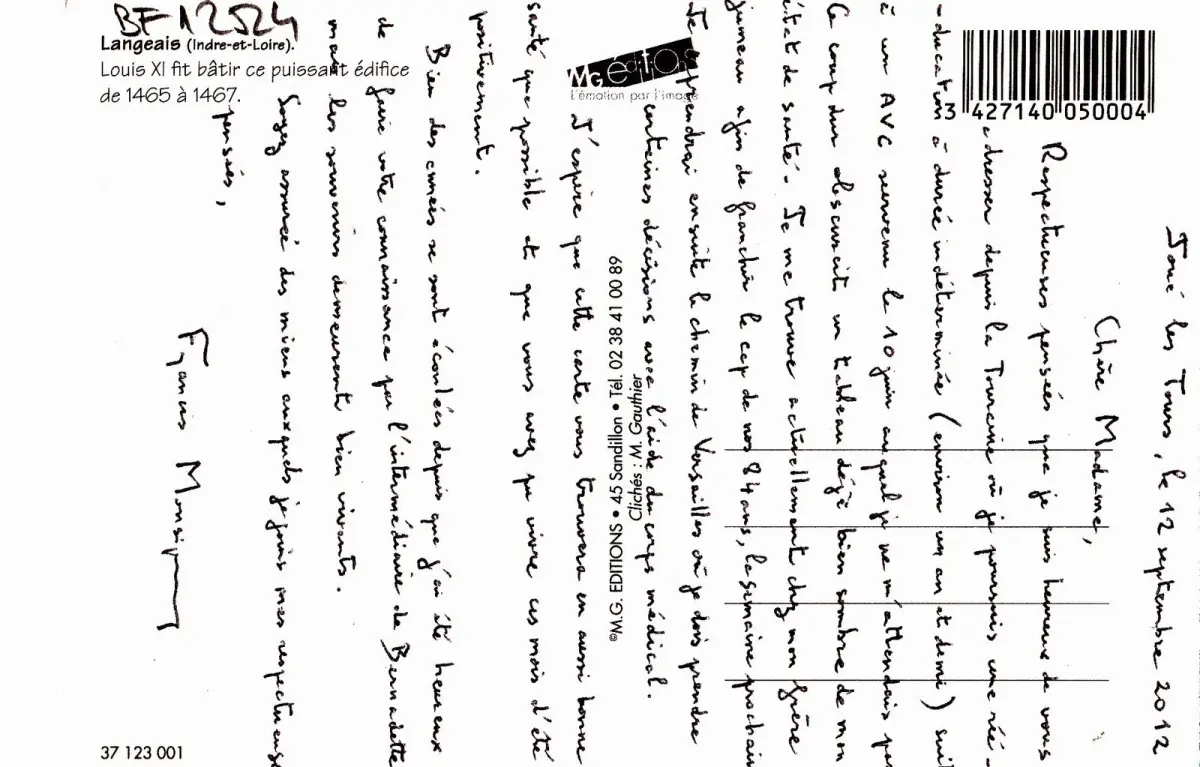 BF12524
Langeais (Indre-et-Loire).
Louis XI fit bâtir ce puissant édifice
de 1465 à 1467.
MG éditions
L'émotion par l'image
3 427140 050004
©M.G. EDITIONS • 45 Sandillon • Tél. 02 38 41 00 89
Clichés : M. Gauthier
37 123 001
Joué les Tours, le 12 septembre 2012
Chère Madame,
Respectueuses pensées que je suis heureux de vous
adresser depuis la Touraine où je poursuis une réé-
-ducation à durée indéterminée (environ un an et demi) suit
à un AVC survenu le 10 juin auquel je ne m'attendais pas
Ce coup dur obscurcit un tableau déjà bien sombre de mon
état de santé. Je me trouve actuellement chez mon frère
jumeau afin de franchir le cap de nos 84 ans, la semaine prochain
Je prendrai ensuite le chemin de Versailles où je dois prendre
certaines décisions avec l'aide du corps médical.
J'espère que cette carte vous trouvera en aussi bonne
santé que possible et que vous avez pu vivre ces mois d'été
positivement.
Bien des années se sont écoulées depuis que j'ai été heureux
de faire votre connaissance par l'intermédiaire de Bernadette
mais les souvenirs demeurent bien vivants.
Soyez assurée des miens auxquels je joins mes respectueuse
pensées,
Francis